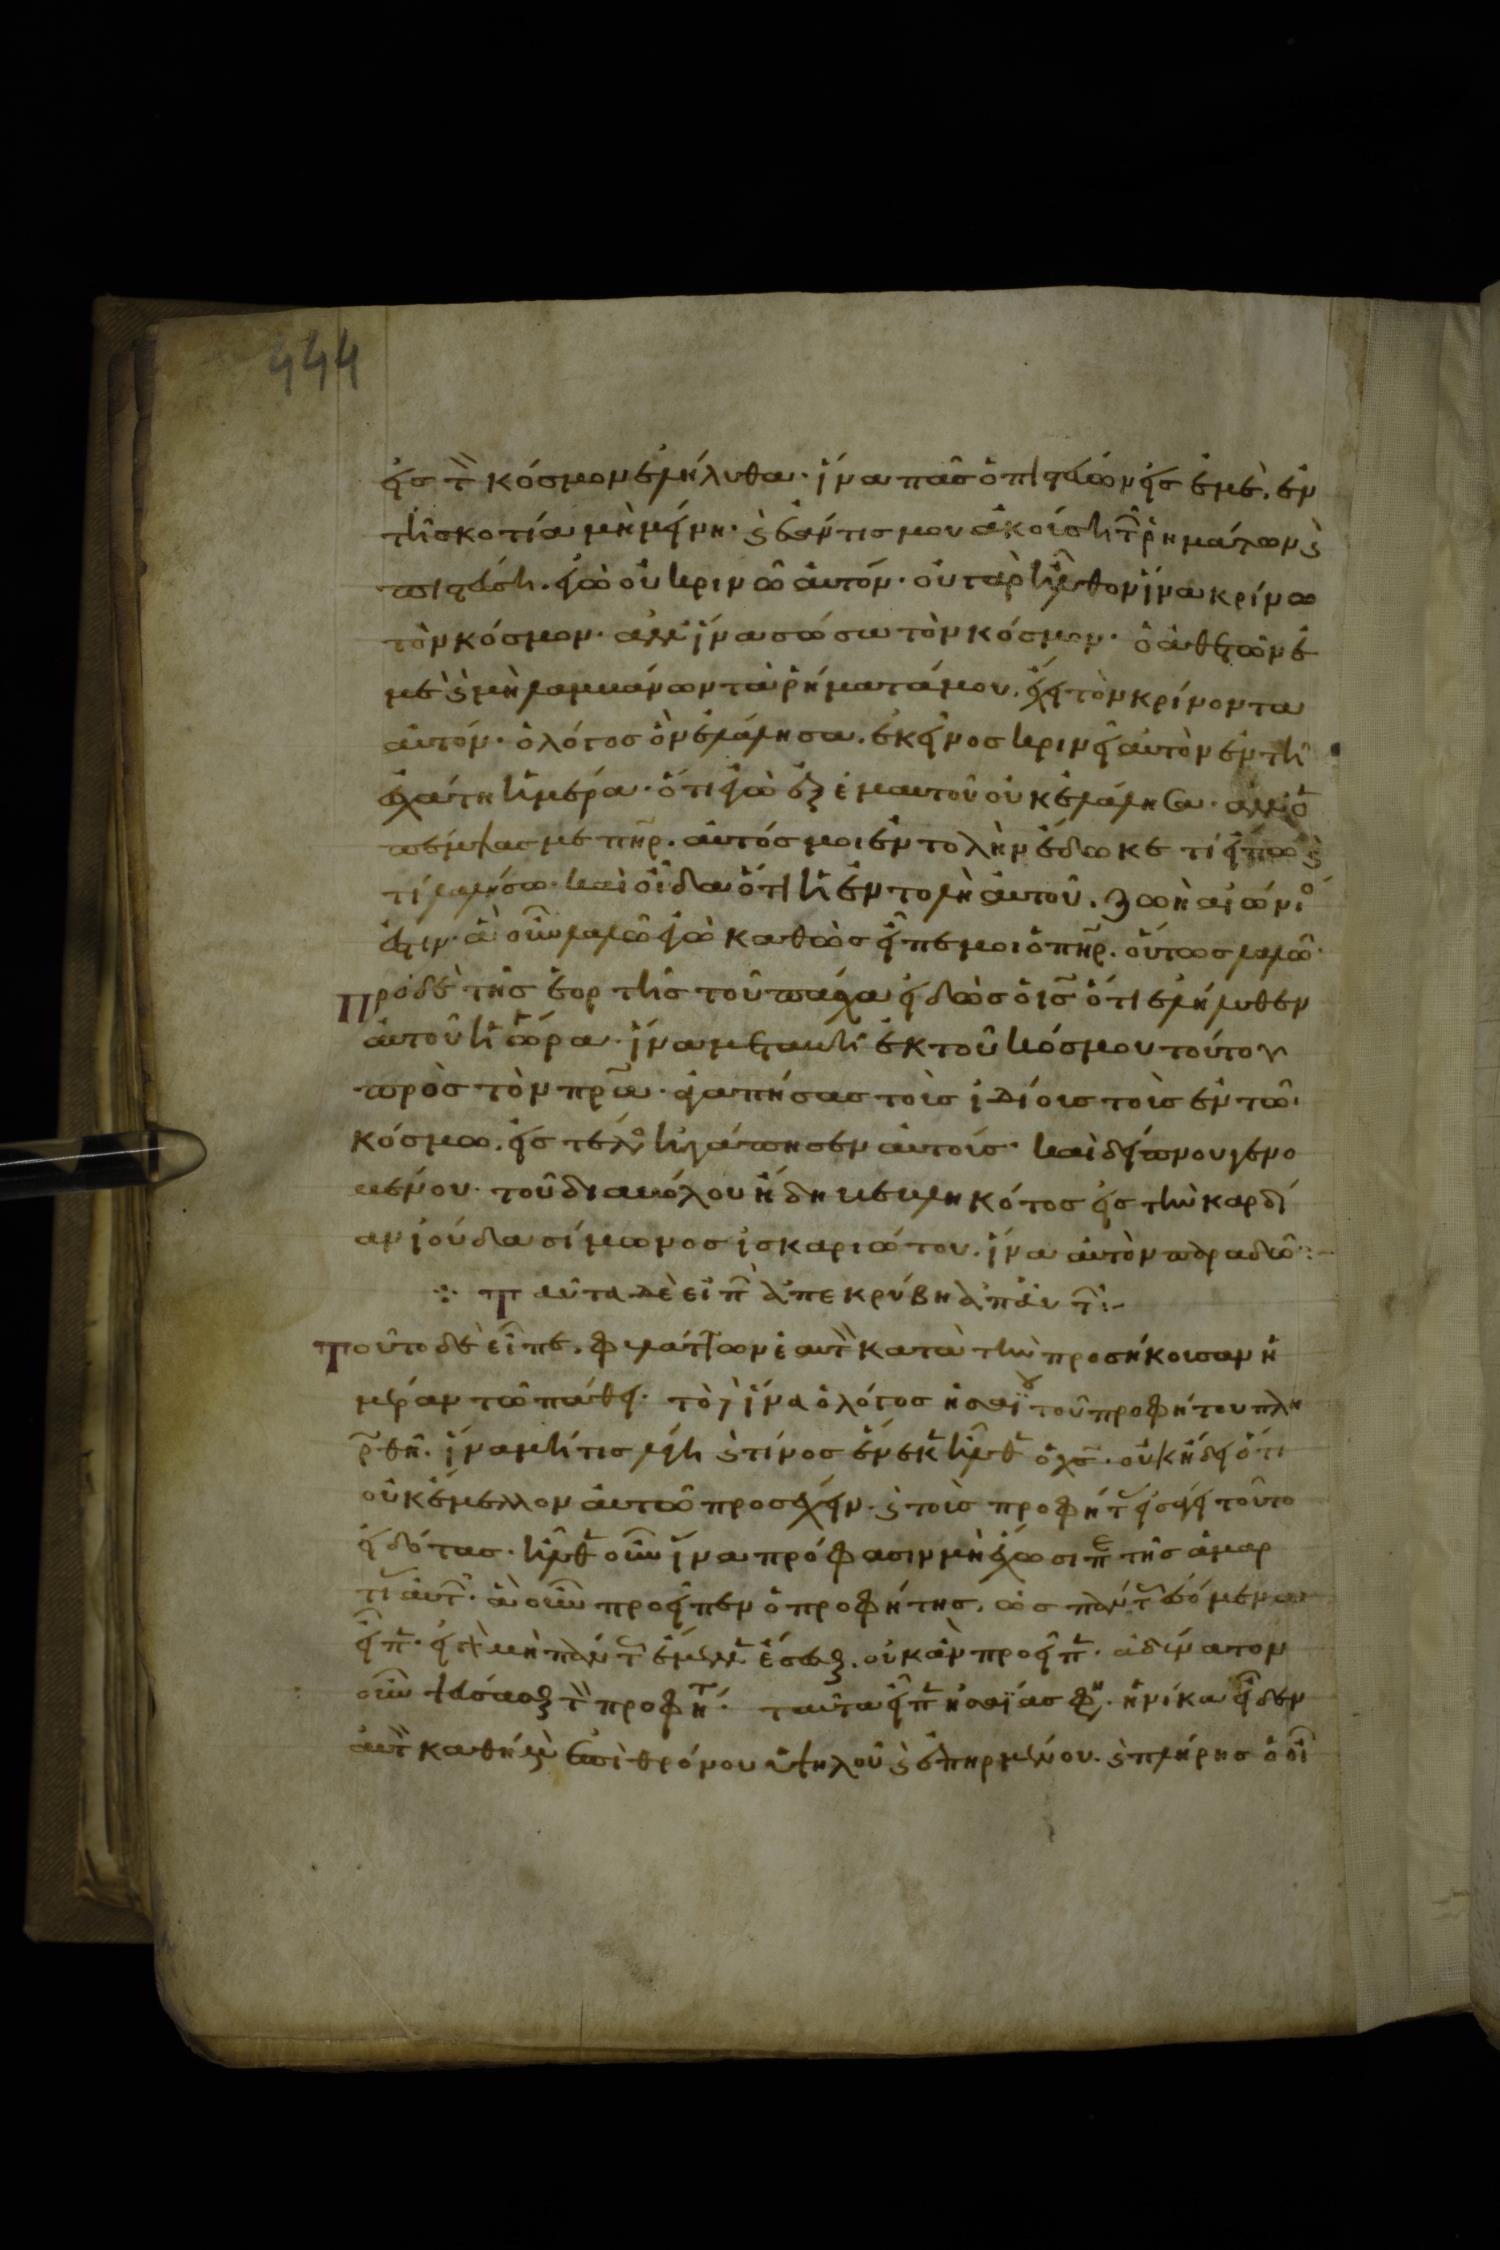 444
εἰς τὸν κόσμον ἐλήλυθα· ἵνα πᾶς ὁ πιστεύων εἰς ἐμὲ. ἐν
τῆ σκοτία μὴ μείνη· καὶ ἐάν τις μου ἀκούση τῶν ῥημάτων καὶ
πιστεύση. ἐγὼ οὐ κρινῶ αὐτόν. οὐ γὰρ ἦλθον ἵνα κρίνω
τὸν κόσμον· ἀλλ' ἵνα σώσω τὸν κόσμον· ὁ ἀθετῶν ἐ
μὲ καὶ μὴ λαμβάνων τὰ ῥήματά μου. ἔχει τὸν κρίνοντα
αὐτόν· ὁ λόγος ὃν ἐλάλησα. ἐκεῖνος κρινεῖ αὐτὸν ἐν τῆ
ἐσχάτη ἡμέρα· ὅτι ἐγὼ ἐξ ἐμαυτοῦ οὐκ ἐλάλησα. ἀλλ' ὁ
πέμψας με πηρ. αὐτός μοι ἐντολὴν ἔδωκε τί εἴπω καὶ
τί λαλήσω. καὶ οἶδα ὅτι ἡ ἐντολὴ αὐτοῦ. ζωὴ αἰώνιος
ἐστιν· ἃ οὖν λαλῶ ἐγὼ καθὼς εἶπε μοι ὁ πηρ. οὕτως λαλῶ·
Πρὸ δὲ τῆς ἑορτῆς τοῦ πάσχα εἰδὼς ὁ ις ὅτι ἐλήλυθεν
αὐτοῦ ἡ ὥρα· ἵνα μεταβῆ ἐκ τοῦ κόσμου τούτου
πρὸς τὸν πρα· ἀγαπήσας τοὶς ἰδίοις τοὶς ἐν τῶ
κόσμω. εἰς τέλος ἠγάπησεν αὐτοίς· καὶ δείπνου γενο
μένου· τοῦ διαβόλου ἤδη βεβληκότος εἰς τὴν καρδί
αν ἰούδα σίμωνος ἰσκαριώτου. ἵνα αὐτὸν παραδῶ:-
Ταῦτα δὲ εἰπὼν ἀπεκρύβη ἀπ' αὐτῶν:-
Τοῦτο δὲ εἶπε. φυλάττων ἑαυτὸν κατὰ τὴν προσήκουσαν ἡ
μέραν τῶ πάθει. τὸ γὰρ ἵνα ὁ λόγος ἠσαΐου τοῦ προφήτου πλη
ρωθῆ. ἵνα μή τις λέγη καὶ τίνος ἕνεκεν ἦλθεν ὁ χς. οὐκ ἤδει ὅτι
οὐκ ἔμελλον αὐτῶ προσέχειν. καὶ τοὶς προφήτας εἰσάγει τοῦτο
εἰδότας. ἦλθεν οὖν ἵνα πρόφασιν μὴ ἔχωσι περὶ τῆς ἁμαρ
τίας αὐτῶν. ἃ οὖν προεῖπεν ὁ προφήτης. ὡς πάντως ἐσόμενα
εἶπεν. εἰ γὰρ μὴ πάντως ἔμελλεν ἔσεσθαι. οὐκ ἂν προεῖπεν. ἀδύνατον
οὖν ψεύσασθαι τὸν προφήτην. ταῦτα εἶπεν ἠσαΐας φησὶν. ἡνίκα εἶδεν
αὐτὸν καθήμενον ἐπὶ θρόνου ὑψηλοῦ καὶ ἐπηρμένου. καὶ πλήρης ὁ οἶ